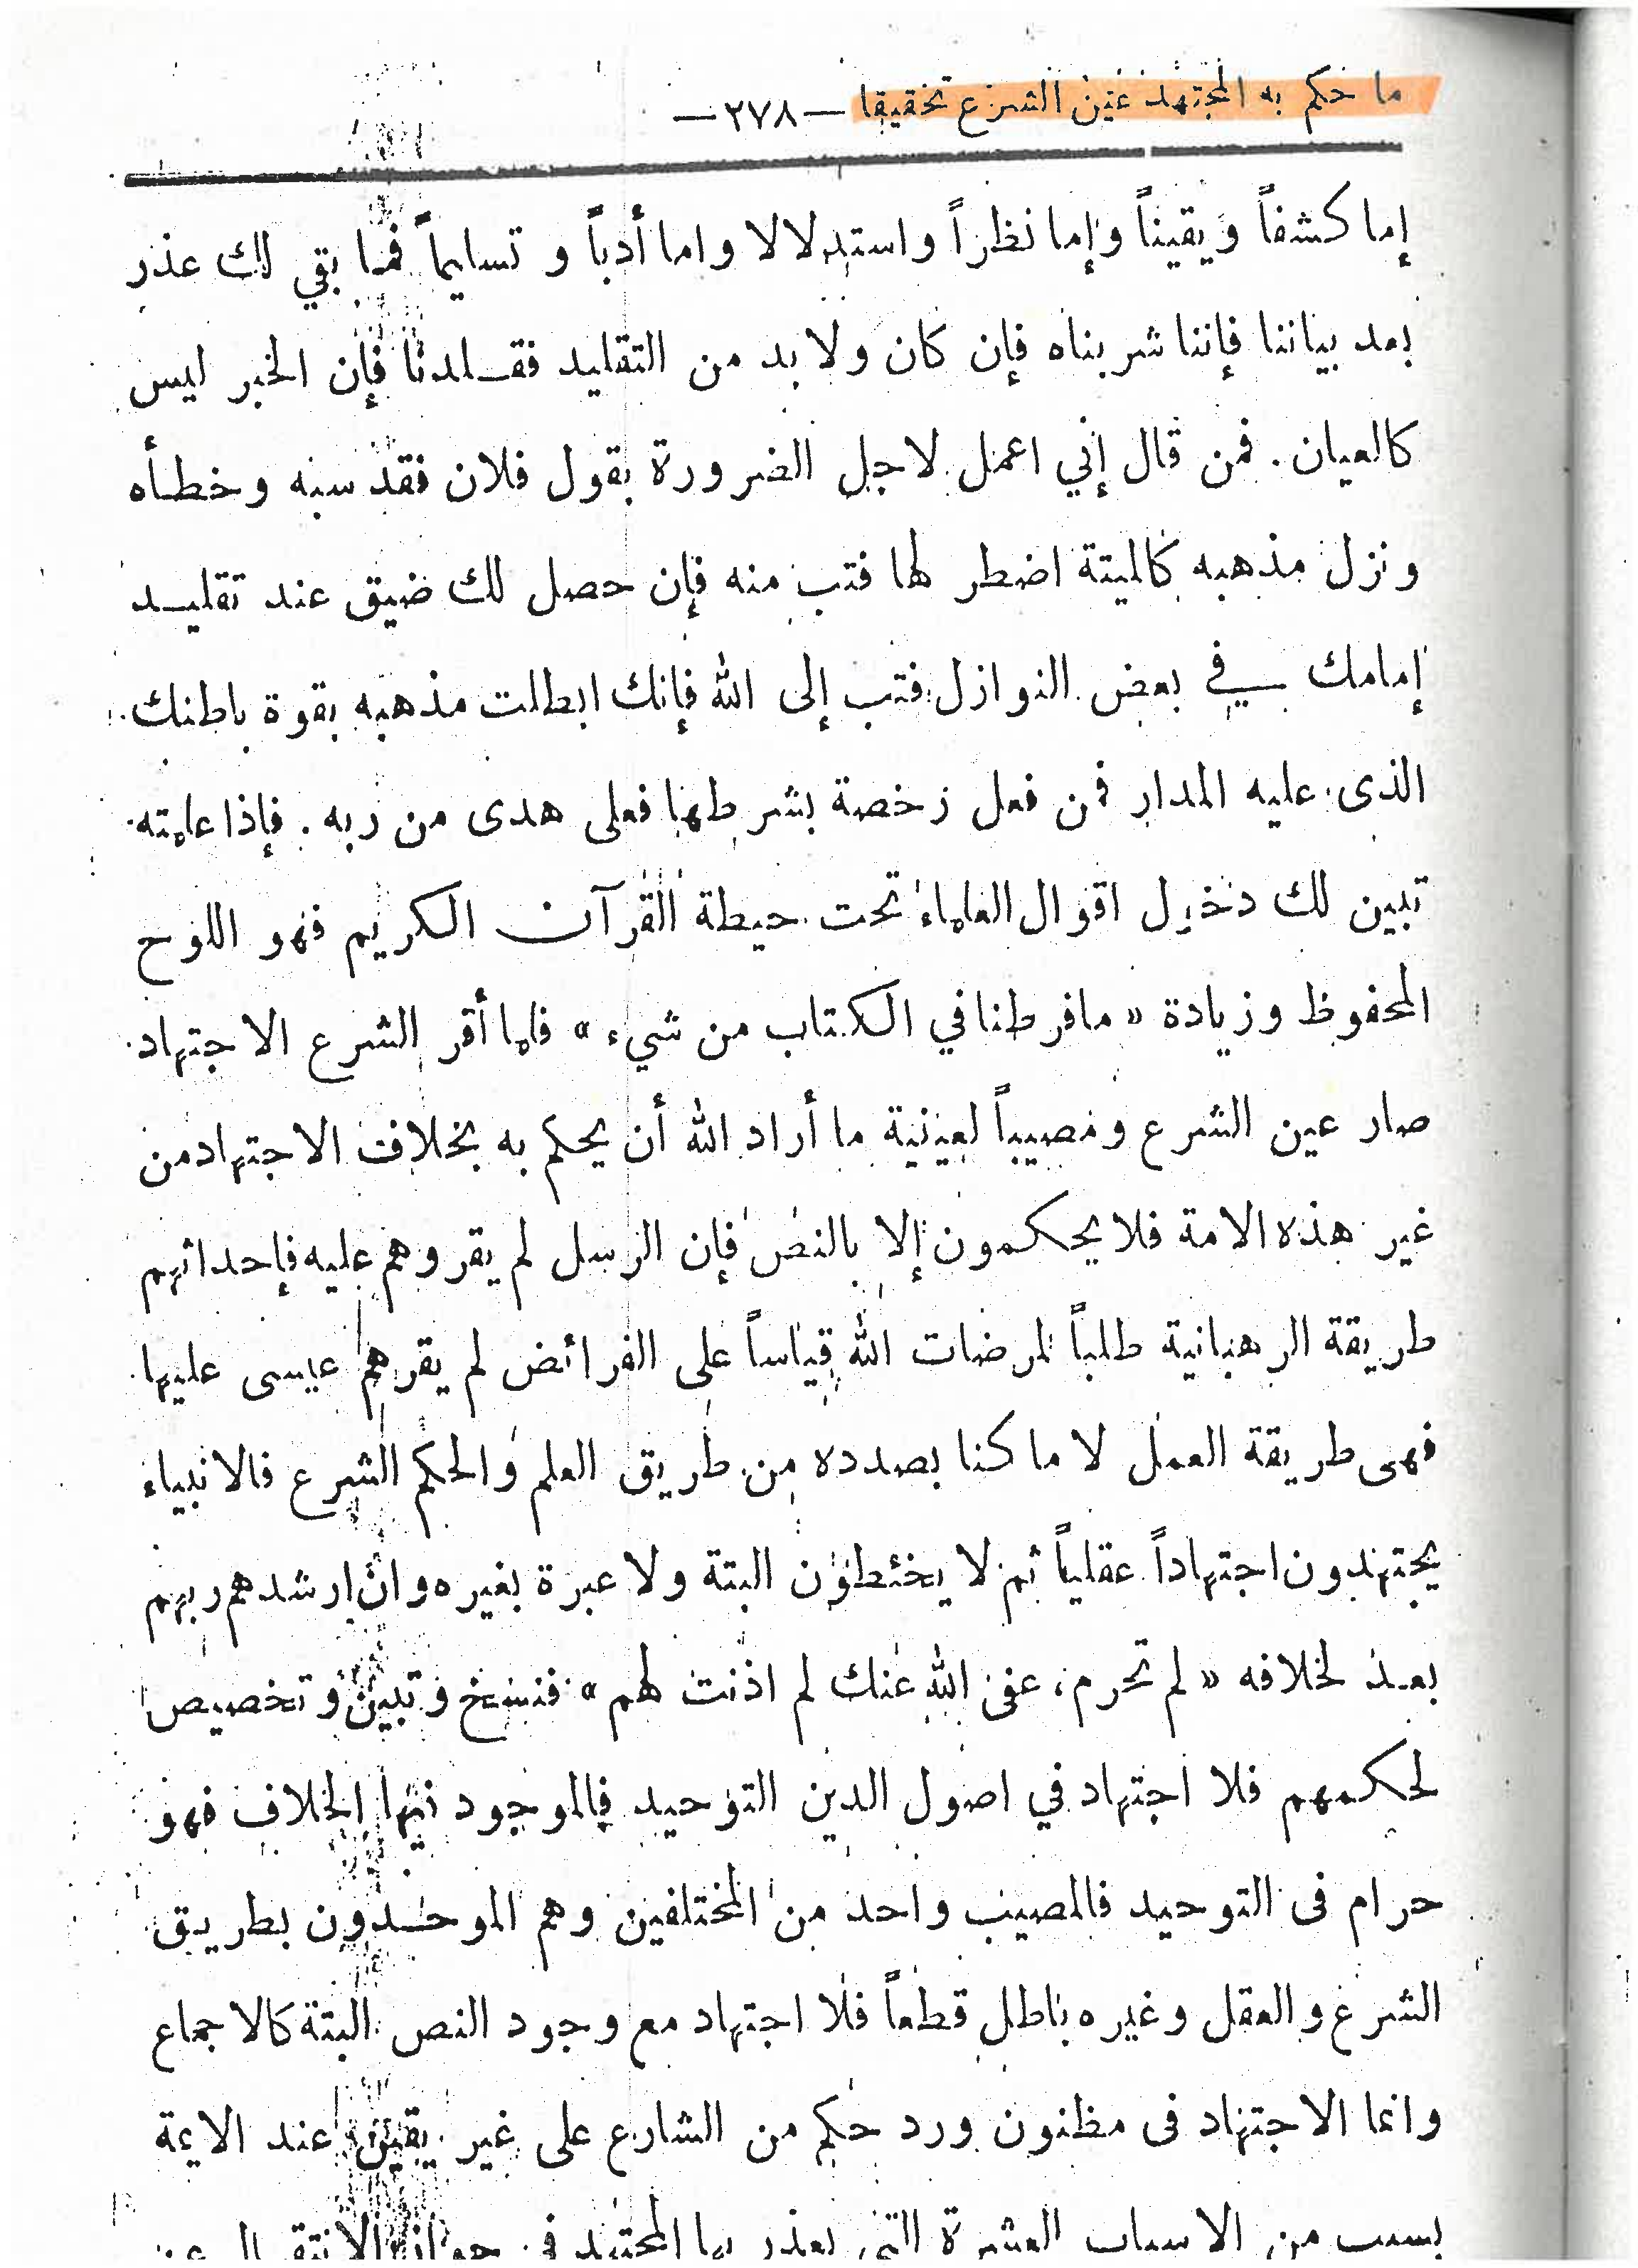 ما حكم به المجتهد عين الشرع تحقيقا — ٢٧٨ —
إما كشفاً ويقيناً وإما نظراً واستدلالا واما أدباً و تسليماً فما بقي لك عذر
بعد بياننا فإننا شربناه فإن كان ولا بد من التقليد فقـلدنا فإن الخبر ليس
كالعيان . فمن قال إني اعمل لاجل الضرورة بقول فلان فقد سبه وخطأه
ونزل مذهبه كالميتة اضطر لها فتب منه فإن حصل لك ضيق عند تقليـد
إمامك في بعض النوازل فتب إلى الله فإنك ابطلت مذهبه بقوة باطنك
الذى عليه المدار فمن فعل رخصة بشرطها فعلى هدى من ربه . فإذا علمته
تبين لك دخول اقوال العلماء تحت حيطة القرآن الكريم فهو اللوح
المحفوظ وزيادة « مافرطنا في الكتاب من شيء » فلما أقر الشرع الاجتهاد
صار عين الشرع ومصيباً لعينية ما أراد الله أن يحكم به بخلاف الاجتهاد من
غير هذه الامة فلا يحكمون إلا بالنص فإن الرسل لم يقروهم عليه فإحداثهم
طريقة الرهبانية طلباً لمرضات الله قياساً على الفرائض لم يقرهم عيسى عليها
فهى طريقة العمل لا ما كنا بصدده من طريق العلم والحكم الشرع فالانبياء
يجتهدون اجتهاداً عقلياً ثم لا يخئطؤن البتة ولا عبرة بغيره وان ارشدهم ربهم
بعـد لخلافه « لم تحرم ، عفى الله عنك لم اذنت لهم » فنسخ وتبين وتخصيص
لحكمهم فلا اجتهاد في اصول الدين التوحيد فالموجود فيها الخلاف فهو
حرام فى التوحيد فالمصيب واحد من المختلفين وهم الموحـدون بطريق
الشرع والعقل وغيره باطل قطعاً فلا اجتهاد مع وجود النص البتة كالاجماع
وانما الاجتهاد فى مظنون ورد حكم من الشارع على غير يقين عند الايمة
بسبب من الاسباب العشرة التي يعذر بها المجتهد في جواز الانتقال عن